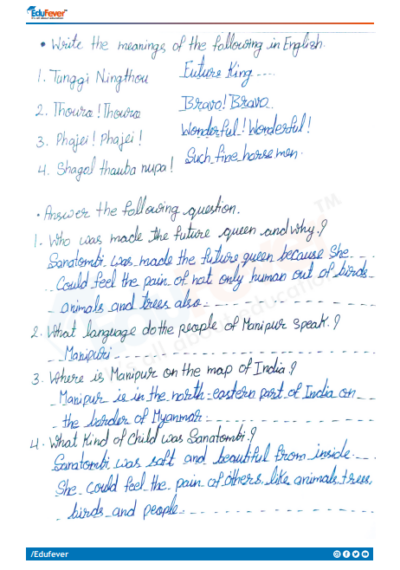 EduFever
• Write the meanings of the following in English.
1. Tunggi Ningthou Future King ....
2. Thoura! Thoura Bravo! Bravo.
3. Phajei! Phajei! Wonderful! Wonderful!
4. Shagol thauba nupa! Such fine horse men.
• Answer the following question.
1. Who was made the future queen and why?
Sanatombi was made the future queen because She
Could feel the pain of not only human out of birds
animals and trees also
2. What language do the people of Manipur speak?
Manipuri
3. Where is Manipur on the map of India?
Manipur is in the north-eastern part of India on
the border of Myanmar.
4. What Kind of Child was Sanatombi?
Sanatombi was soft and beautiful from inside.
She could feel the pain of others like animals trees,
birds and people.
/Edufever